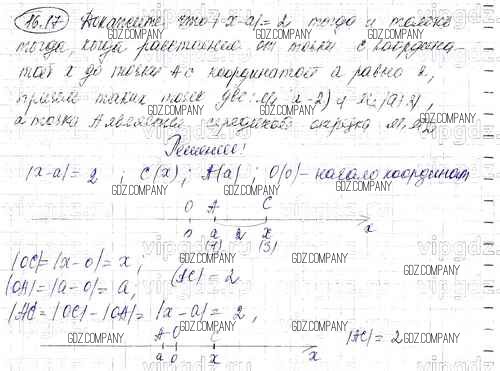 16.17 Докажите, что |x-a|=2 тогда и только
тогда, когда расстояние от точки с координа-
той x до точки A с координатой a равно 2,
причём таких точек две: M₁(a-2) и M₂(a+2),
а точка A является серединой отрезка M₁M₂
Решение!
|x-a|=2 ; C(x); A(a) ; O(0) - начало координат
O A C
0 a 2 x x
|OC|=|x-0|=x;
|OA|=|a-0|=a, |AC|=2
|AC|=|OC|-|OA|=|x-a|=2,
A O C |AC|=2
a 0 x x
GDZ.COMPANY
vipgdz.com